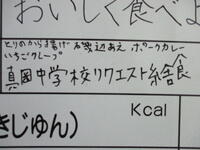 おいしく食べよ
とりのから揚げ 磯辺あえ ポークカレー
いちごクレープ
真岡中学校リクエスト給食
Kcal
きじゅん)